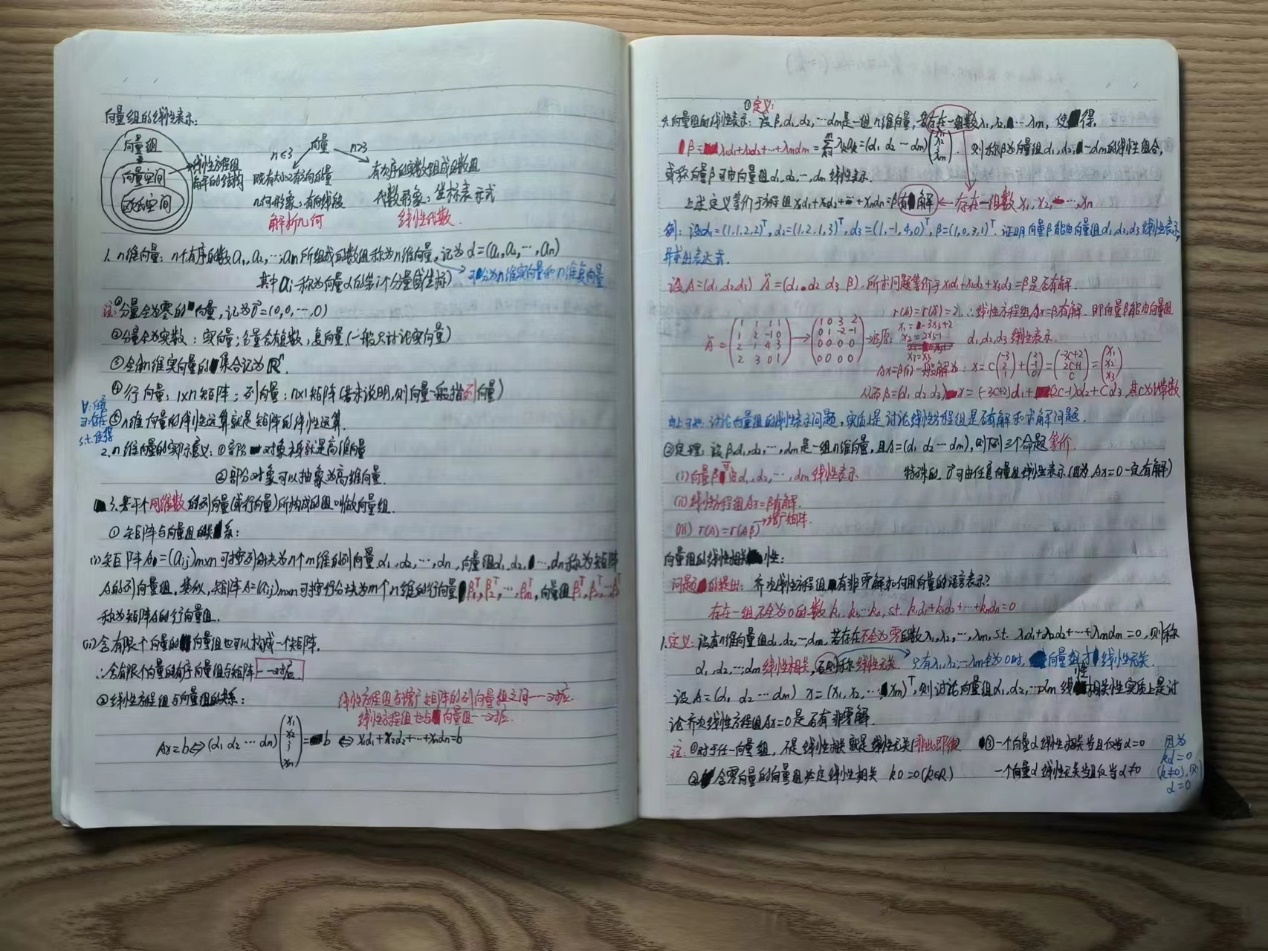 向量组的线性表示:
向量组
向量空间
线性方程组
解的结构
n≤3 向量 n>3
既有大小又有方向量
几何形象:有向线段
解析几何
有次序的实数组成的数组
代数形象:坐标表示式
线性代数
1. n维向量: n个有序的数a₁,a₂,…,aₙ所组成的数组称为n维向量,记为α=(a₁,a₂,…,aₙ)
其中aᵢ称为向量α的第i个分量(或坐标) → 可分为n维实向量和n维复向量
注:①分量全为零的向量,记为0=(0,0,…,0)
②分量全为实数:实向量;分量含复数,复向量(一般只讨论实向量)
③全体n维实向量的集合记为Rⁿ.
④行向量:1×n矩阵;列向量:n×1矩阵(若未说明,则向量一般指列向量)
∀:任意
∃:存在
s.t.使得
⑤n维向量的线性运算就是矩阵的线性运算.
2. n维向量的实际意义:①部分对象本身就是高维向量
②部分对象可以抽象为高维向量.
3.若干个同维数的列向量(或行向量)所构成的组叫做向量组.
①矩阵与向量组的关系:
(i)矩阵A=(aᵢⱼ)m×n可按列分块为n个n维的列向量α₁,α₂,…,αₙ,向量组α₁,α₂,…,αₙ称为矩阵
A的列向量组,类似,矩阵A=(aᵢⱼ)m×n可按行分块为m个n维的行向量β₁ᵀ,β₂ᵀ,…,βₘᵀ,向量组β₁ᵀ,β₂ᵀ,…βₘᵀ
称为矩阵A的行向量组.
(ii)含有限个向量的向量组也可以构成一个矩阵.
∴含有限个向量的有序向量组与矩阵一一对应
②线性方程组与向量组的关系:
线性方程组与增广矩阵的列向量组之间一一对应.
线性方程组也与向量组一一对应.
Ax=b⇔(α₁ α₂ … αₙ)(x₁ x₂ ⋮ xₙ)=b ⇔ x₁α₁+x₂α₂+…+xₙαₙ=b
①定义:
向量组的线性表示:设β,α₁,α₂,…αm是一组n维向量,若存在一组数λ₁,λ₂,…,λm,使得
β=λ₁α₁+λ₂α₂+…+λmαm=(α₁ α₂ … αm)(λ₁ λ₂ ⋮ λm),则称β为向量组α₁,α₂,…αm的线性组合,
或称向量β可由向量组α₁,α₂,…,αm线性表示.
上述定义等价于方程组x₁α₁+x₂α₂+…+xₙαₙ=β有解←存在一组数x₁,x₂,…,xₙ
例:设α₁=(1,1,2,2)ᵀ,α₂=(1,2,1,3)ᵀ,α₃=(1,-1,4,0)ᵀ,β=(1,0,3,1)ᵀ.证明向量β能由向量组α₁,α₂,α₃线性表示,
并求出表达式.
设A=(α₁ α₂ α₃) Ã=(α₁ α₂ α₃ β),所求问题等价于x₁α₁+x₂α₂+x₃α₃=β是否有解.
r(A)=r(Ã)=2,∴线性方程组Ax=β有解.即向量β能由向量组
α₁,α₂,α₃线性表示.
Ã=(1 1 1 1
1 2 -1 0
2 1 4 3
2 3 0 1)→(1 0 3 2
0 1 -2 -1
0 0 0 0
0 0 0 0) 还原:
x₁=-3x₃+2
x₂=2x₃-1
x₃=x₃
Ax=β的一般解为:x=c(-3 2 1)+(2 -1 0)=(-3c+2 2c-1 c)=(x₁ x₂ x₃)
从而β=(α₁,α₂,α₃)x=(-3c+2)α₁+(2c-1)α₂+cα₃,其中c为任意常数
由上可知,讨论向量组的线性表示问题,实质上是讨论线性方程组是否有解和求解问题.
②定理:设β,α₁,α₂,…,αm是一组n维向量,且A=(α₁ α₂ … αm),则下列三个命题等价
(i)向量β可由α₁,α₂,…,αm线性表示 特殊的,0可由任意向量组线性表示(因为Ax=0一定有解)
(ii)线性方程组Ax=β有解.
(iii) r(A)=r(A,β)→增广矩阵.
向量组的线性相关性:
问题的提出:齐次线性方程组有非零解如何用向量的语言表示?
存在一组不全为0的数k₁,k₂,…kₙ,s.t. k₁α₁+k₂α₂+…+kₙαₙ=0
1.定义:设有n维向量组α₁,α₂,…αm,若存在不全为零的数λ₁,λ₂,…,λm,s.t. λ₁α₁+λ₂α₂+…+λmαm=0,则称
α₁,α₂,…,αm线性相关,否则称线性无关→只有λ₁,λ₂,…λm全为0时,向量组才线性无关.
设A=(α₁ α₂ … αm) x=(x₁,x₂,…,xm)ᵀ,则讨论向量组α₁,α₂,…αm线性相关性实质上是讨
论齐次线性方程组Ax=0是否有非零解.
注:①对于任一向量组,不是线性相关就是线性无关|非此即彼 ③一个向量α线性相关当且仅当α=0
②含零向量的向量组必定线性相关 k0=0(k∈R) 一个向量α线性无关当且仅当α≠0
因为
kα=0
α=0